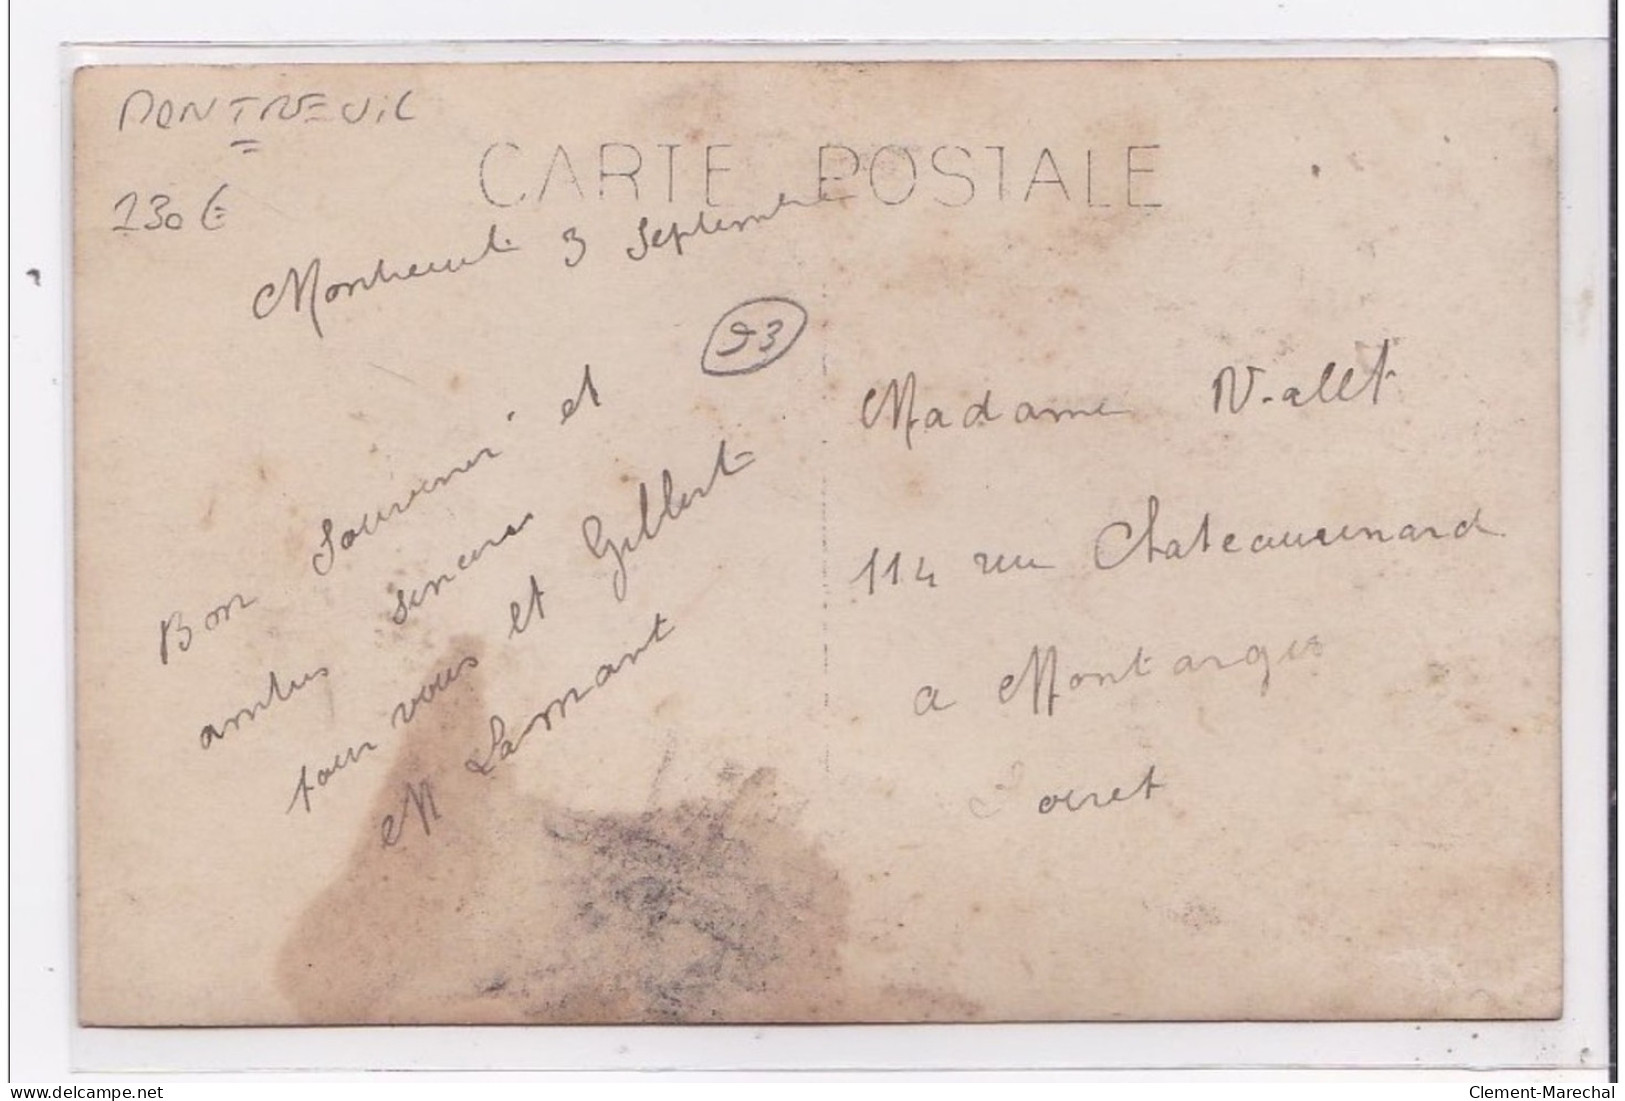 MONTREUIL
130€
CARTE POSTALE
Montreuil 3 Septembre
93
Bon Souvenir et
amities sinceres
pour vous et Gilbert
M Lamant
Madame Vallet
114 rue Chateaurenard
a Montargis
Loiret
delcampe.net
Clement-Marechal